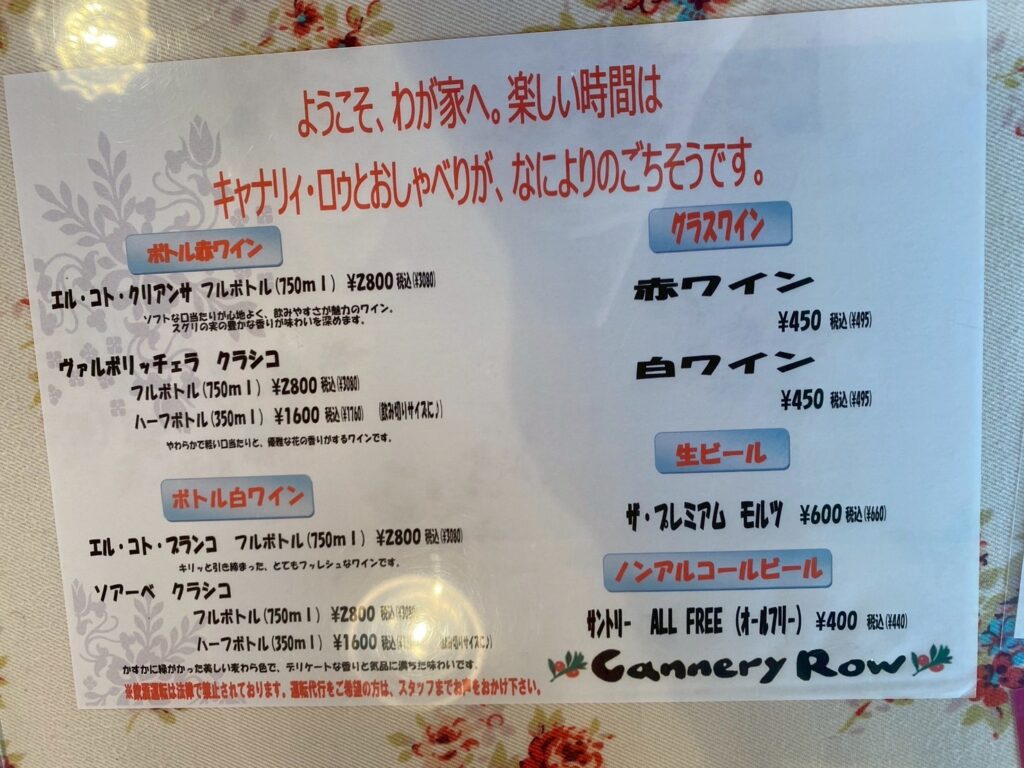 ようこそ、わが家へ。楽しい時間は
キャナリィ・ロゥとおしゃべりが、なによりのごちそうです。
ボトル赤ワイン
エル・コト・クリアンサ フルボトル(750ml) ¥2800 税込(¥3080)
ソフトな口当たりが心地よく、飲みやすさが魅力のワイン。
スグリの実の豊かな香りが味わいを深めます。
ヴァルポリッチェラ クラシコ
フルボトル(750ml) ¥2800 税込(¥3080)
ハーフボトル(350ml) ¥1600 税込(¥1760) (飲み切りサイズに♪)
やわらかで軽い口当たりと、優雅な花の香りがするワインです。
ボトル白ワイン
エル・コト・ブランコ フルボトル(750ml) ¥2800 税込(¥3080)
キリッと引き締まった、とてもフレッシュなワインです。
ソアーベ クラシコ
フルボトル(750ml) ¥2800 税込(¥3080)
ハーフボトル(350ml) ¥1600 (飲み切りサイズに♪)
かすかに緑がかった美しい麦わら色で、デリケートな香りと気品に満ちた味わいです。
※飲酒運転は法律で禁止されております。運転代行をご希望の方は、スタッフまでお声をおかけ下さい。
グラスワイン
赤ワイン
¥450 税込(¥495)
白ワイン
¥450 税込(¥495)
生ビール
ザ・プレミアム モルツ ¥600 税込(¥660)
ノンアルコールビール
サントリー ALL FREE (オールフリー) ¥400 税込(¥440)
Cannery Row